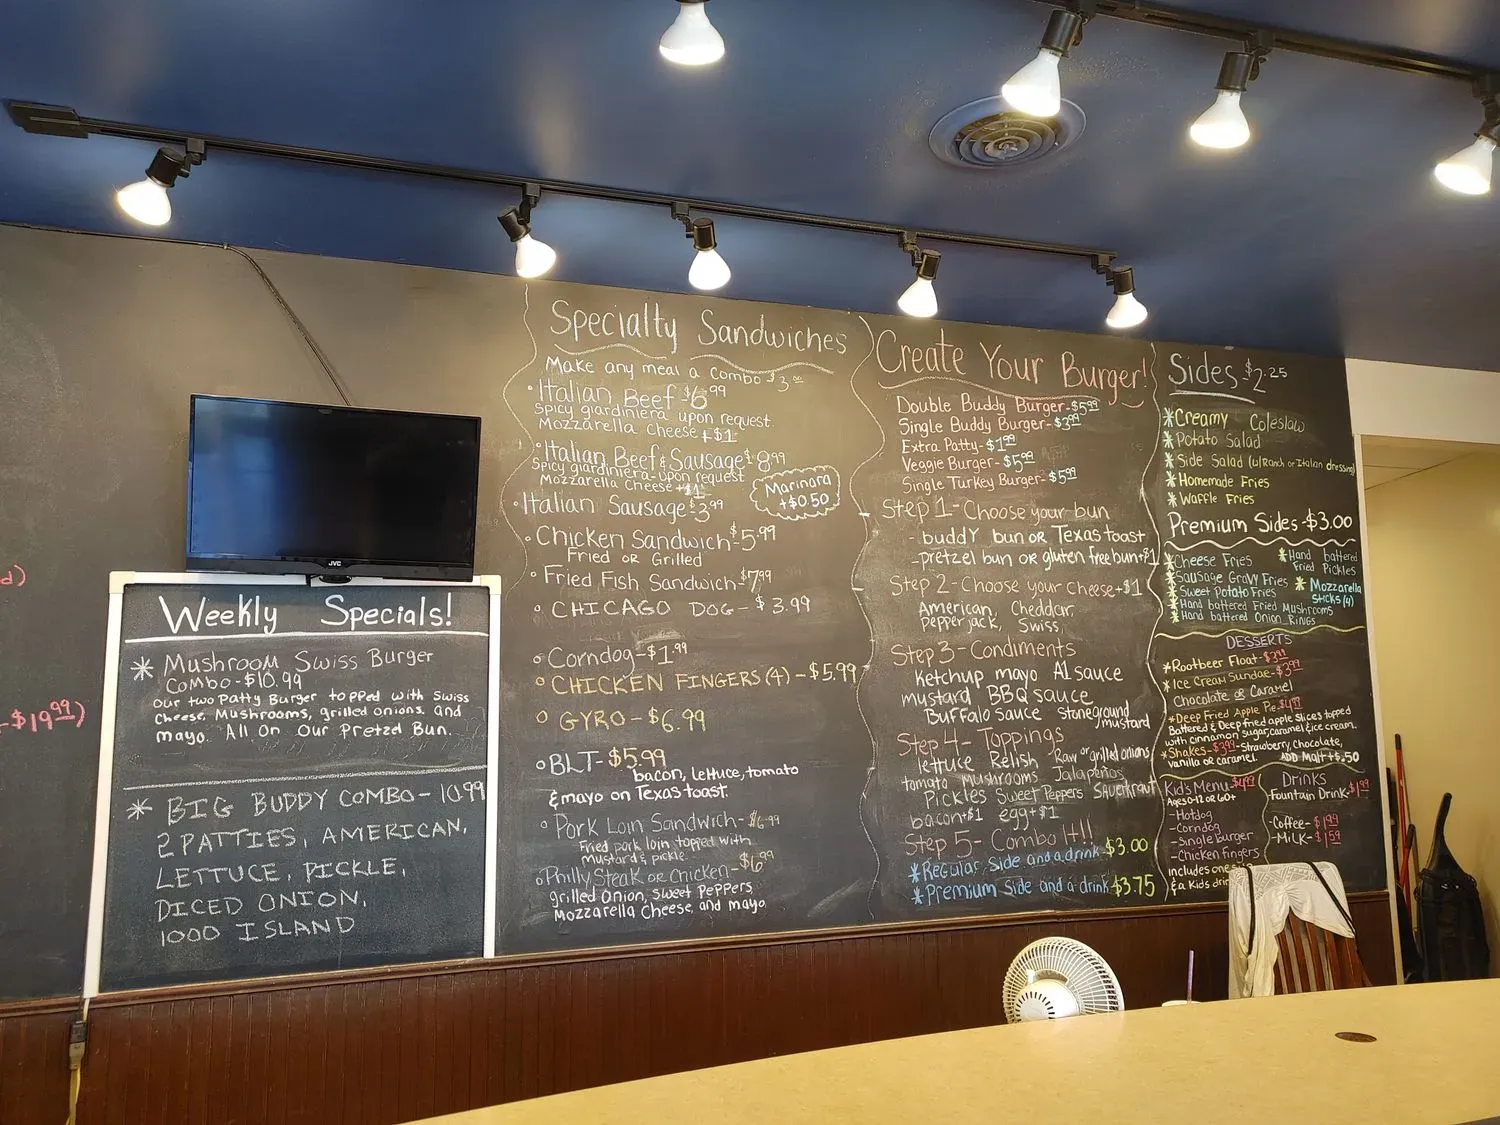 d)
-$19.99)
JVC
Weekly Specials!
* Mushroom Swiss Burger
Combo-$10.99
our two patty Burger topped with Swiss
Cheese, Mushrooms, grilled onions, and
mayo. All On Our Pretzel Bun.
* BIG BUDDY COMBO - 10.99
2 PATTIES, AMERICAN,
LETTUCE, PICKLE,
DICED ONION,
1000 ISLAND
Specialty Sandwiches
Make any meal a Combo $3.00
Italian Beef $6.99
Spicy giardiniera upon request.
Mozzarella Cheese +$1
Italian Beef & Sausage $8.99
Spicy giardiniera-upon request
Mozzarella Cheese +$1
Marinara
+$0.50
Italian Sausage $3.99
Chicken Sandwich-$5.99
Fried OR Grilled
Fried Fish Sandwich-$7.99
CHICAGO DOG - $3.99
Corndog-$1.99
CHICKEN FINGERS (4) - $5.99
GYRO - $6.99
BLT-$5.99
bacon, lettuce, tomato
& mayo on Texas toast.
Pork Loin Sandwich-$6.99
Fried pork loin topped with
mustard & pickle.
Philly Steak or Chicken-$6.99
grilled Onion, Sweet Peppers,
Mozzarella Cheese, and mayo.
Create Your Burger!
Double Buddy Burger-$5.99
Single Buddy Burger-$3.99
Extra Patty-$1.99
Veggie Burger-$5.99
Single Turkey Burger-$5.99
Step 1-Choose your bun
- buddy bun OR Texas toast
- pretzel bun or gluten free bun+$1
Step 2-Choose your cheese+$1
American, Cheddar,
Pepperjack, Swiss,
Step 3-Condiments
Ketchup mayo A1 sauce
mustard BBQ sauce
Buffalo Sauce Stoneground
mustard
Step 4-Toppings
lettuce Relish Raw or grilled onions
tomato Mushrooms Jalapeños
Pickles Sweet Peppers Sauerkraut
bacon+$1 egg+$1
Step 5- Combo It!!
* Regular Side and a drink $3.00
* Premium Side and a drink $3.75
Sides-$2.25
* Creamy Coleslaw
* Potato Salad
* Side Salad (w/Ranch or Italian dressing)
* Homemade Fries
* Waffle Fries
Premium Sides-$3.00
* Cheese Fries
* Sausage Gravy Fries
* Sweet Potato Fries
* Hand battered Fried Mushrooms
* Hand battered Onion Rings
* Hand battered
Fried Pickles
* Mozzarella
Sticks (4)
DESSERTS
* Rootbeer Float-$3.99
* Ice Cream Sundae-$3.99
Chocolate OR Caramel
* Deep Fried Apple Pie-$4.99
Battered & Deep fried apple Slices topped
with cinnamon sugar, caramel & ice cream.
* Shakes-$3.99-Strawberry, Chocolate,
vanilla or caramel. ADD Malt +$.50
Kid's Menu-$4.99
Ages 0-12 or 60+
-Hotdog
-Corndog
-Single Burger
-Chicken Fingers
includes one
& a Kids drin
Drinks
Fountain Drink-$1.99
-Coffee-$1.99
-Milk-$1.59